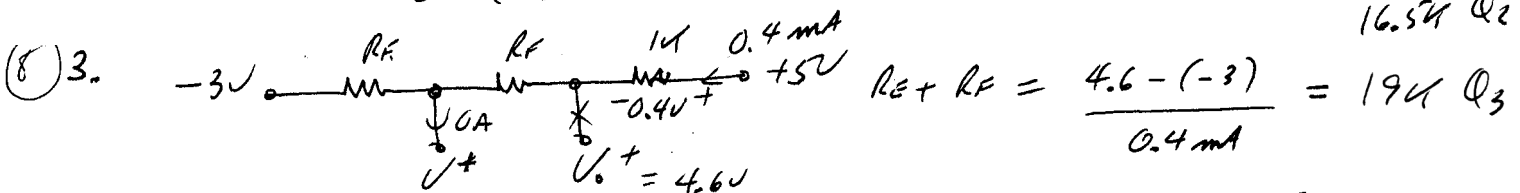 16.5K Q2
(8) 3. -3V RE RF 1K 0.4 mA +5V RE + RF = 4.6 - (-3) / 0.4 mA = 19K Q3
0A -0.4V+
V+ Vo+ = 4.6V